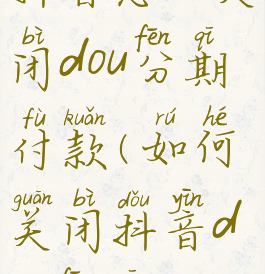 bì fēn qī
闭dou分期
fù kuǎn rú hé
付款(如何
guān bì dǒu yīn
关闭抖音d